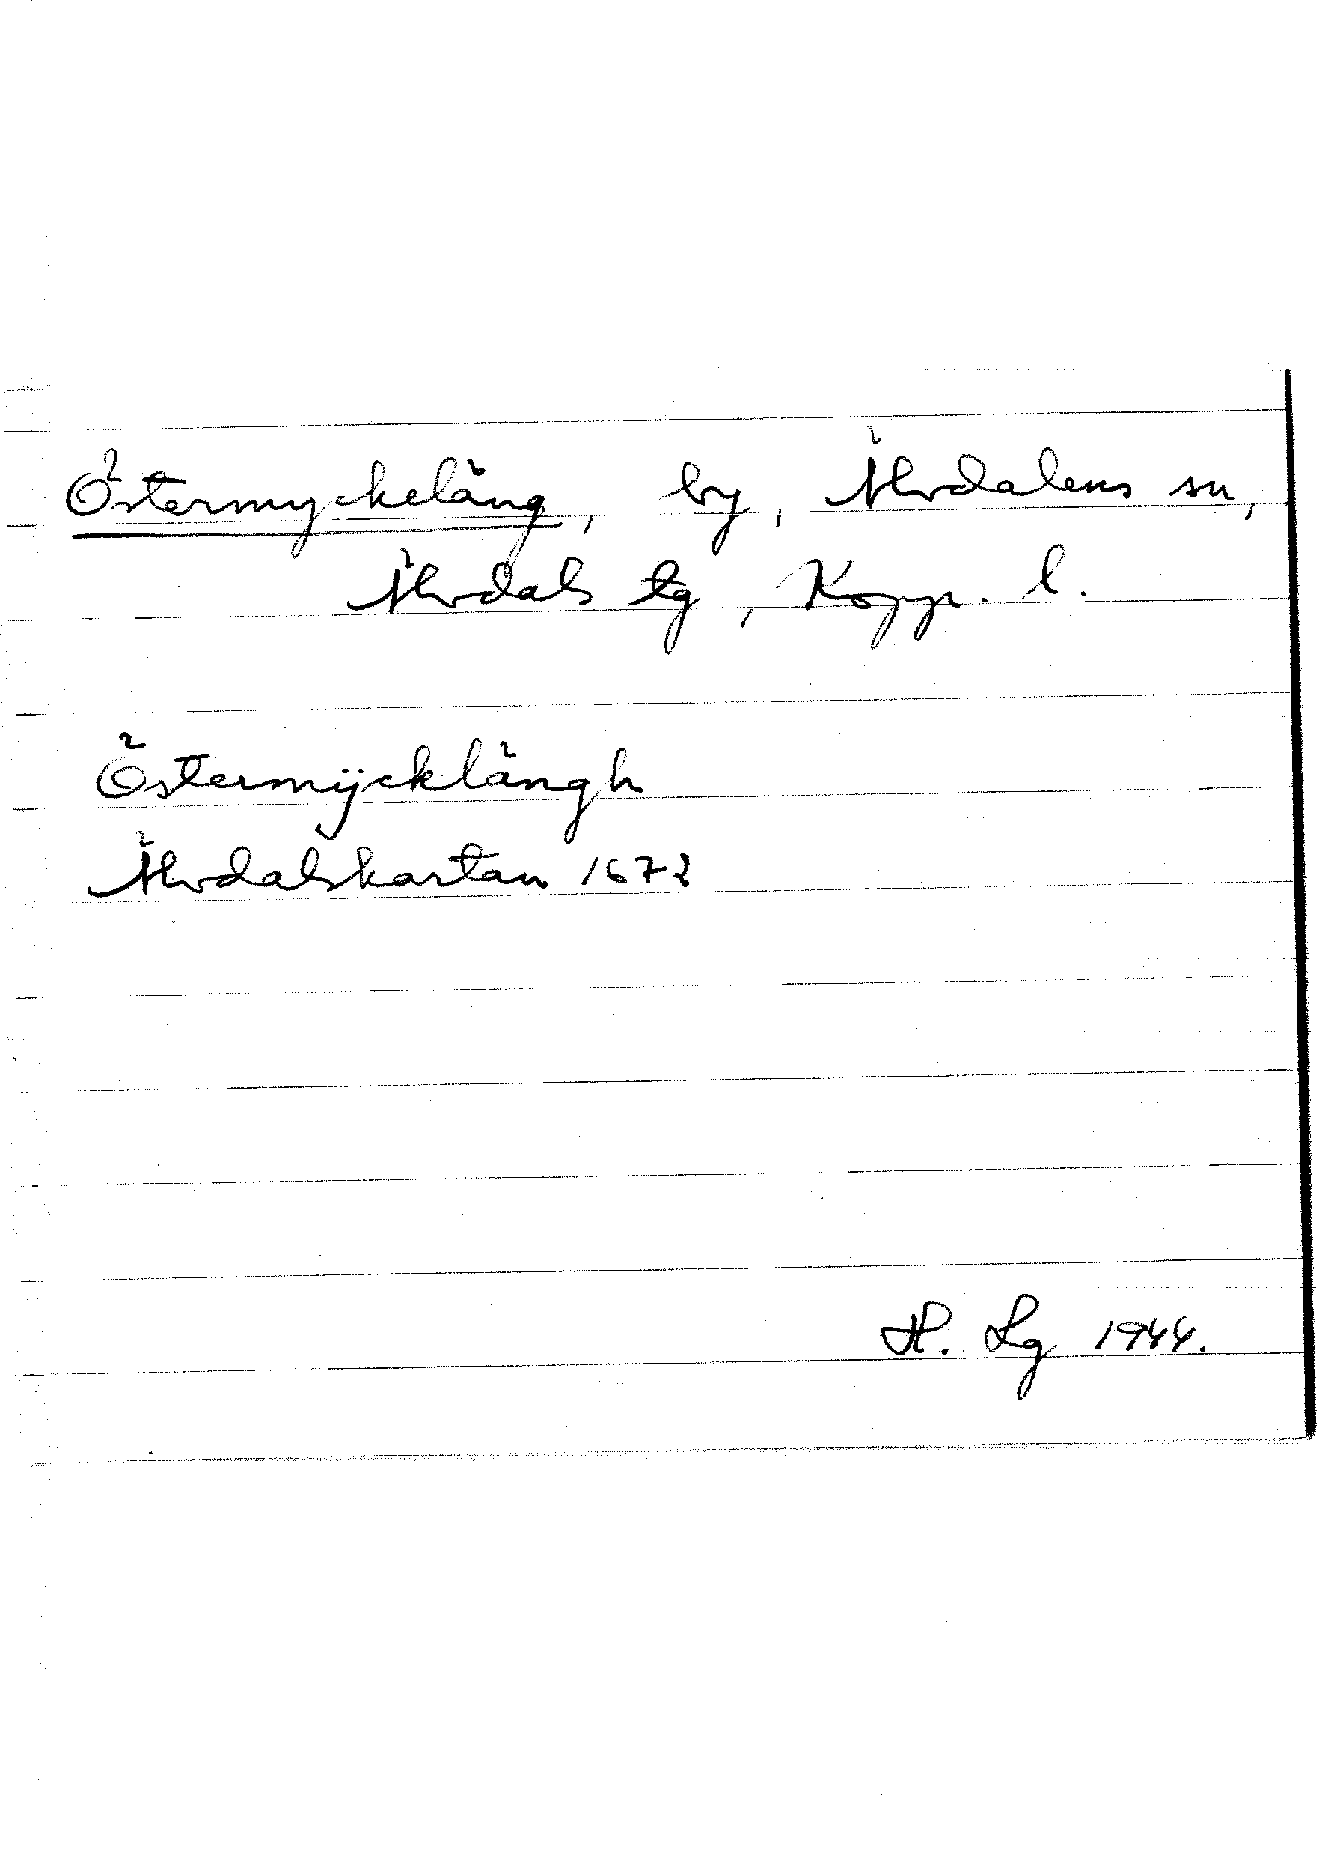 Östermyckeläng, by, Älvdalens sn,
Älvdals tg, Kopp. l.
Östermÿcklängh
Älvdalskartan 1672
H. Lg 1944.